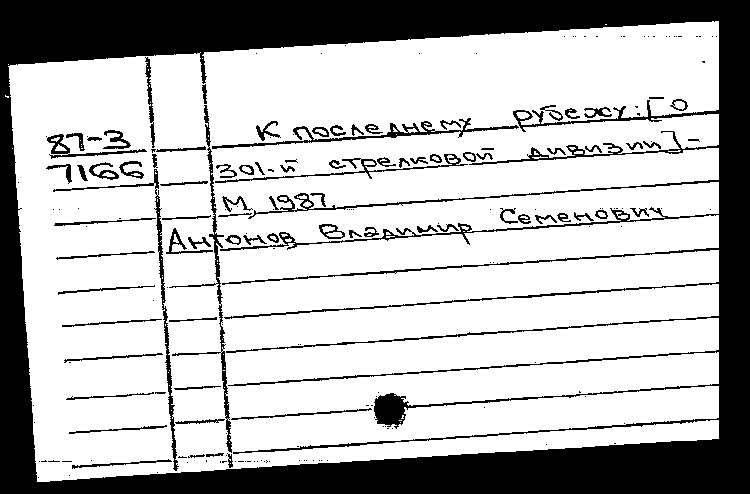 87-3
7166
К последнему рубежу: [О
301-й стрелковой дивизии] -
М, 1987.
Антонов, Владимир Семенович